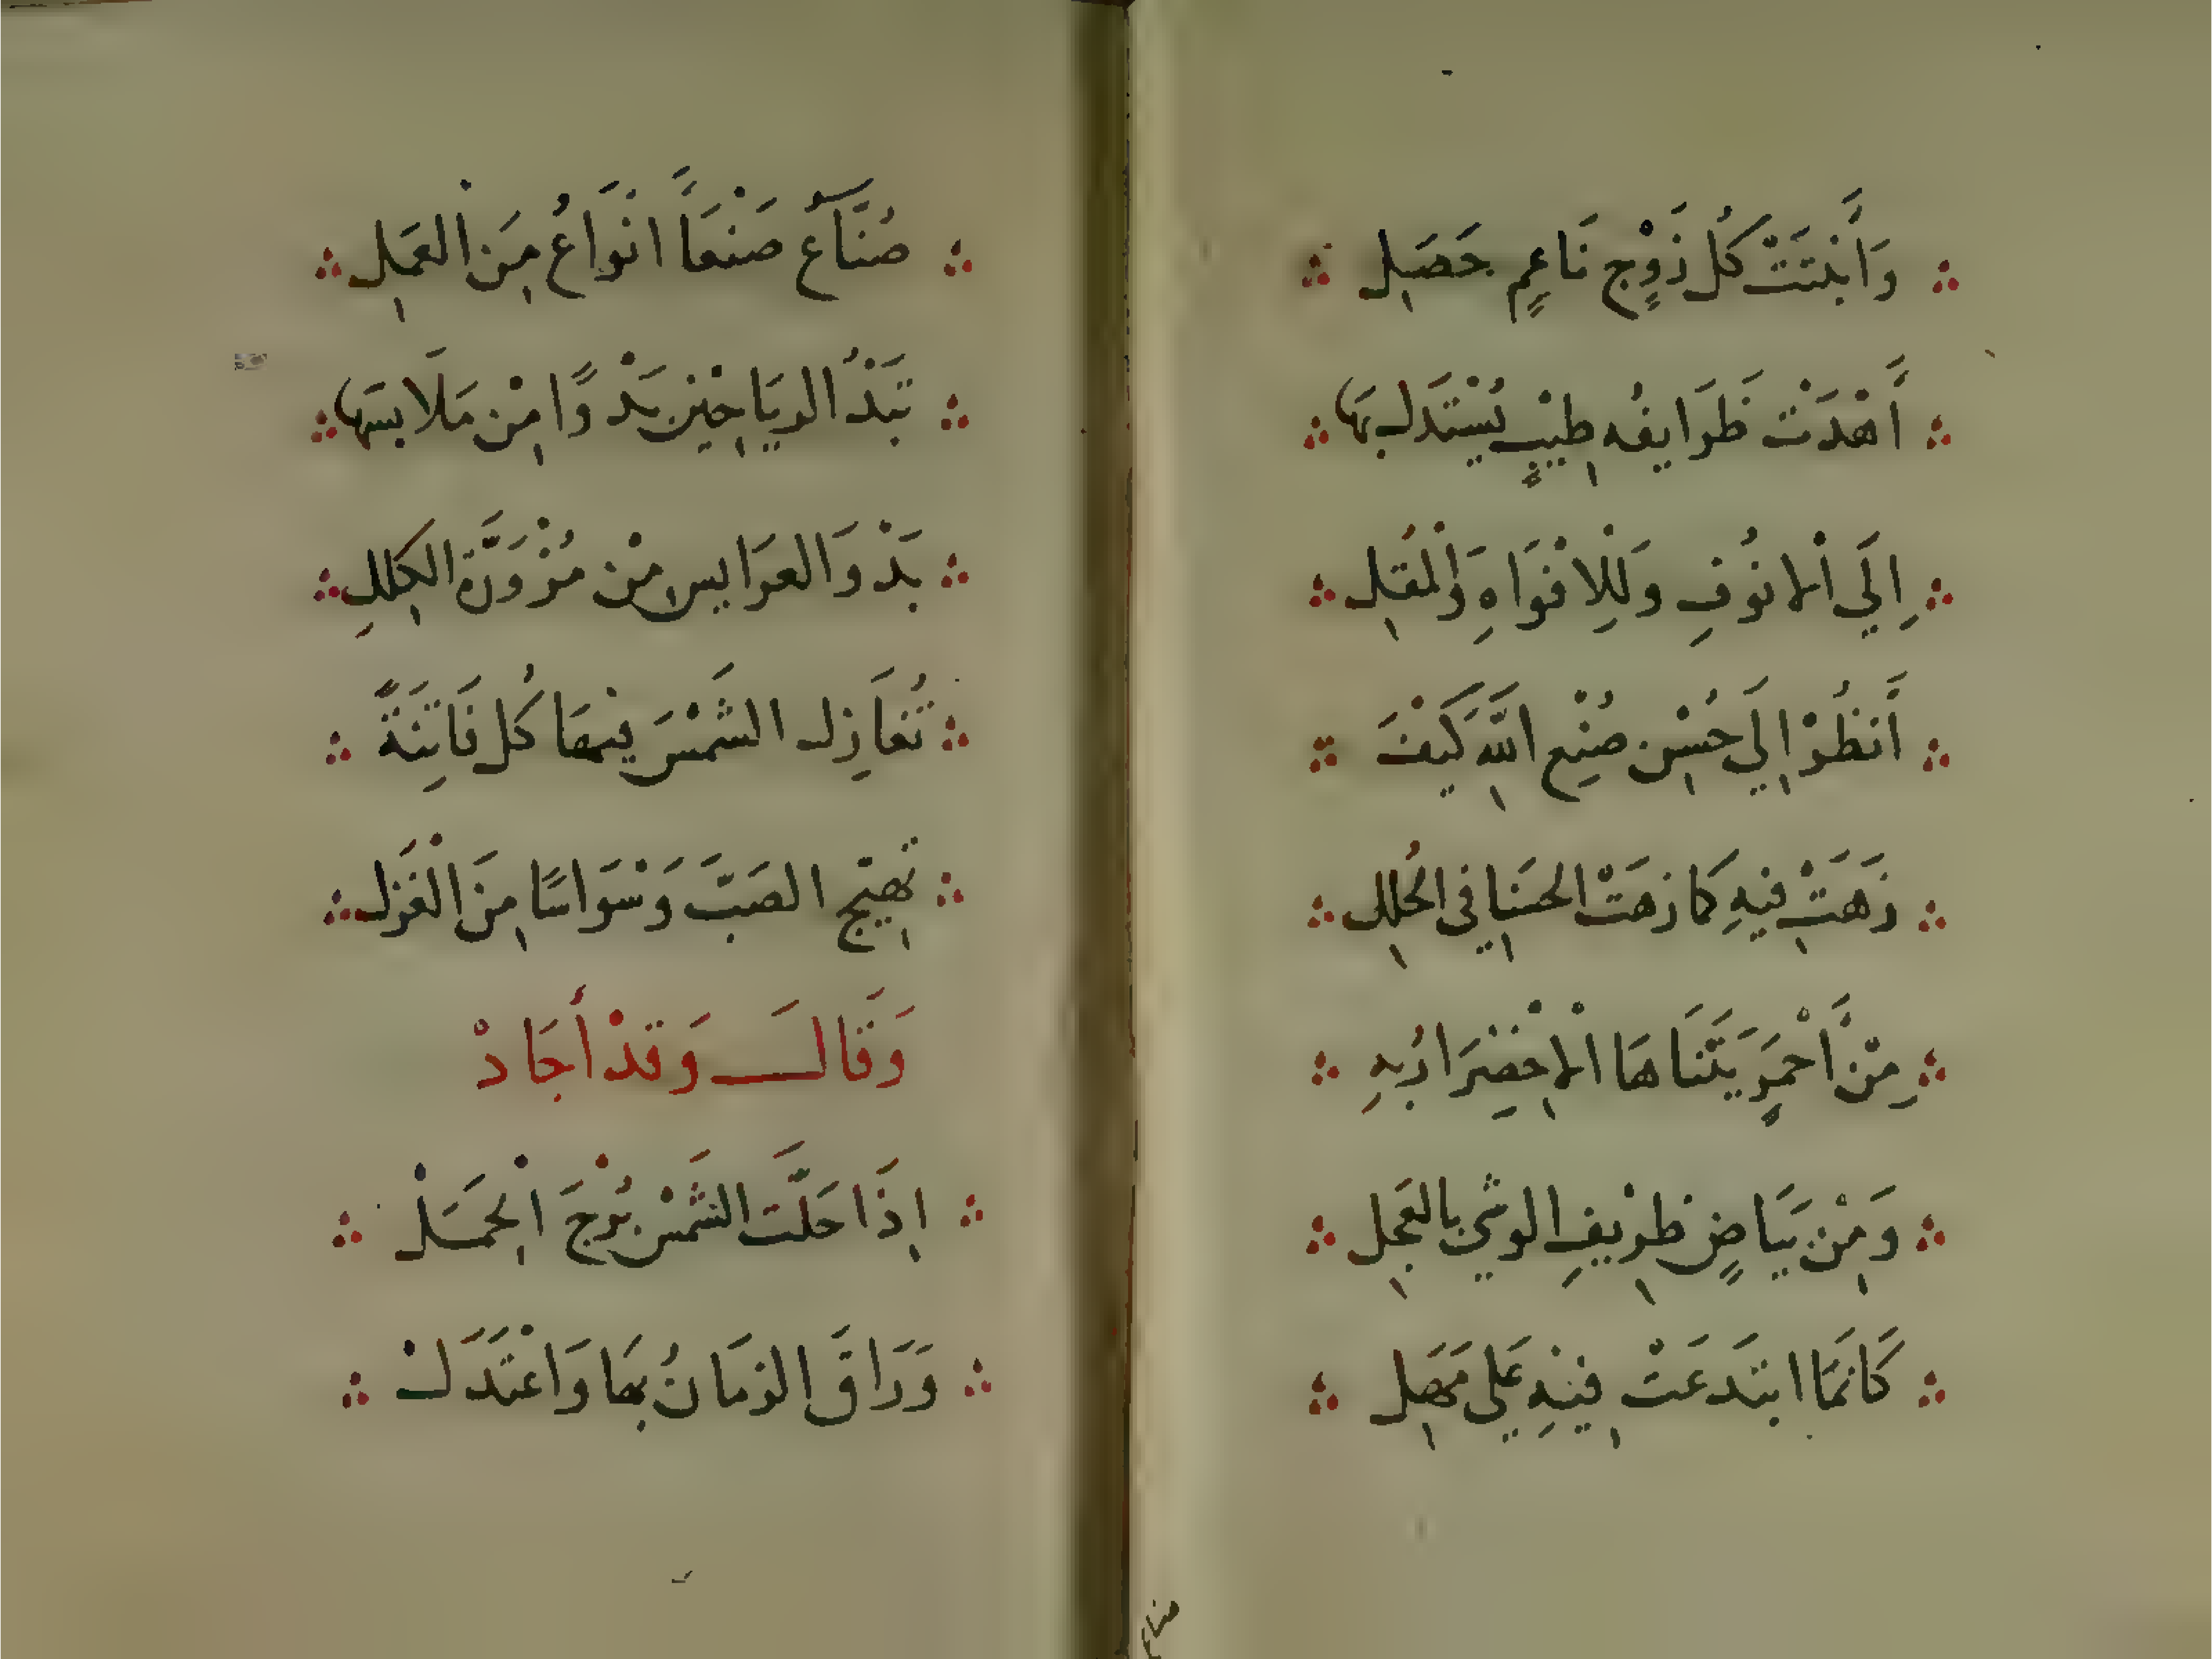 وَأَنْبَتَتْ كُلَ زَوْجٍ نَاعِمٍ خَضِلِ
أَهْدَتْ ظَرَايفُه طِيْبٍ يُسْتَدَل بِهَا
اِلَي اْلانُوُفِ وَلِلْافْوَاهِ وَالْمُقَلِ
أَنظُرْ اِلَي حُسْنِ صُنْعِ اللَّهِ كَيْفَ
زَهَتْ فِيهِ كَمَا زَهَتْ الحَسَنِا فِي الحُلَلِ
مِنْ أَحْمَرٍ يَتَنَاهَا اْلاِخْضِرَارُ بِهِ
وَمِنْ بَيَاضٍ ظرِيفِ الوشي بِالعَجِلِ
كَانَمَا ابتَدَعَتْ فِيْهِ عَلَي مَهَلِ
صُنَّآعَ صَنْعَاً انْوَاعُ مِنَ العَمَلِ
تَبَدْو الريَاحِيْنِ بَدْوًا مِنْ مَلَابسَهَا
بَدْوَ العرَايسِ مِنْ مُزْوَرَّة الكِلَلِ
تُغَازِل الشَمْسَ فيهَا كُل فَاتِنَةً
تهِيّج الصَبَّ وَسْوَاسًا مِنَ الْغَزَل
وَقَالَ وَقدْ أجَادْ
اِذَا حَلَّت الشَمْس بُرْجَ اْلحَمَلْ
وَرَاقَ الزمَانُ بِهَا وَاعْتَدَلْ
صناع